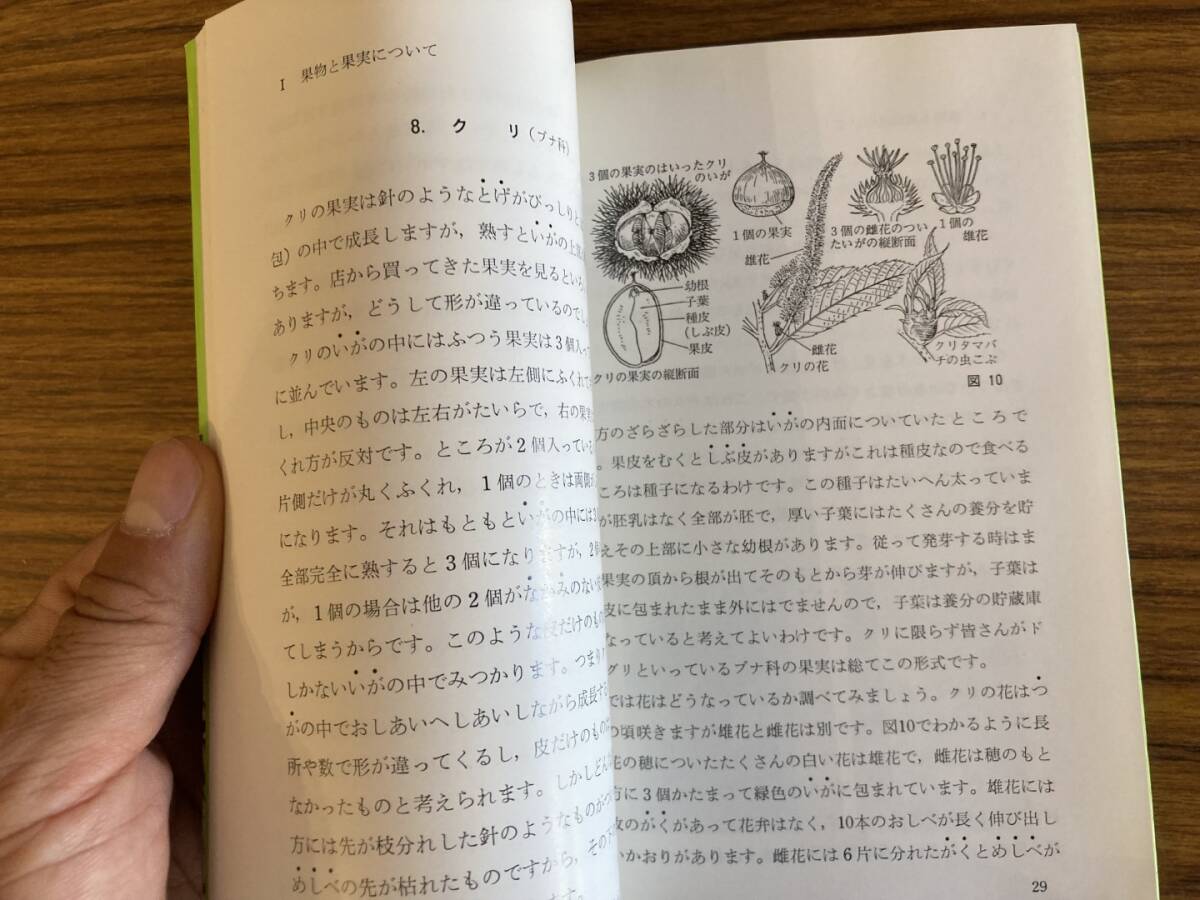 I 果物と果実について
8. ク リ(ブナ科)
クリの果実は針のようなとげがびっしりと
包)の中で成長しますが,熟すといがの上
ちます。店から買ってきた果実を見るといろ
ありますが,どうして形が違っているのでし
クリのいがの中にはふつう果実は3個入っ
に並んでいます。左の果実は左側にふくれ
し,中央のものは左右がたいらで,右の果
くれ方が反対です。ところが2個入っている
片側だけが丸くふくれ,1個のときは両側
になります。それはもともといがの中には
全部完全に熟すると3個になりますが,2
が,1個の場合は他の2個がなかみのない
てしまうからです。このような皮だけのも
しかないいがの中でみつかります。つまり
がの中でおしあいへしあいしながら成長する
所や数で形が違ってくるし,皮だけのもの
なかったものと考えられます。しかしどん
方には先が枝分れした針のようなものがつ
めしべの先が枯れたものですから,その下
ます。
3個の果実のはいったクリ
のいが
1個の果実
雄花
3個の雌花のつい
たいがの縦断面
1個の
雄花
幼根
子葉
種皮
(しぶ皮)
果皮
クリの果実の縦断面
雌花
クリの花
クリタマバ
チの虫こぶ
図 10
方のざらざらした部分はいがの内面についていたところで
。果皮をむくとしぶ皮がありますがこれは種皮なので食べる
ころは種子になるわけです。この種子はたいへん太っていま
が胚乳はなく全部が胚で,厚い子葉にはたくさんの養分を貯
えその上部に小さな幼根があります。従って発芽する時はま
果実の頂から根が出てそのもとから芽が伸びますが,子葉は
皮に包まれたまま外にはでませんので,子葉は養分の貯蔵庫
なっていると考えてよいわけです。クリに限らず皆さんがド
グリといっているブナ科の果実は総てこの形式です。
では花はどうなっているか調べてみましょう。クリの花はつ
の頃咲きますが雄花と雌花は別です。図10でわかるように長
花の穂についたたくさんの白い花は雄花で,雌花は穂のもと
方に3個かたまって緑色のいがに包まれています。雄花には
枚のがくがあって花弁はなく,10本のおしべが長く伸び出し
いかおりがあります。雌花には6片に分れたがくとめしべが
29